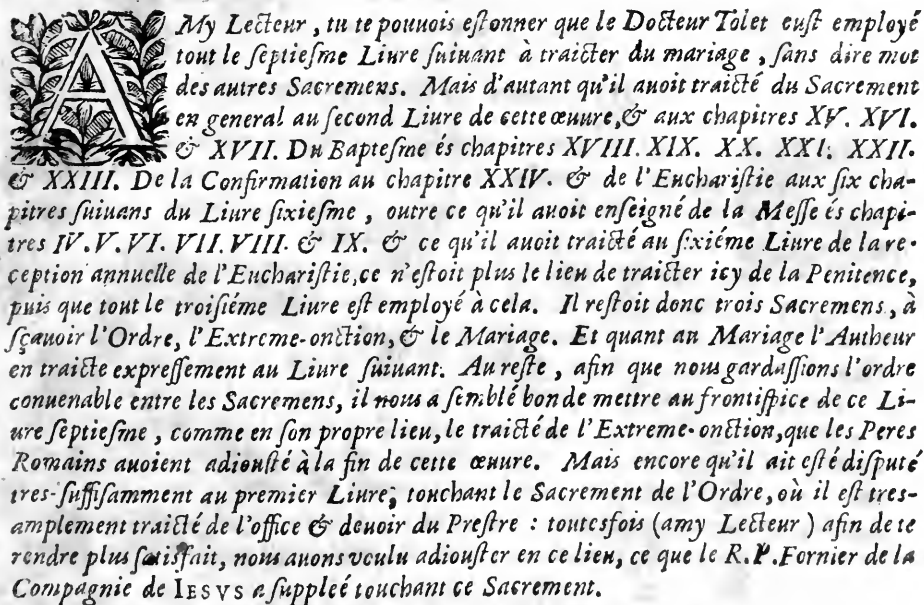 AMy Lecteur, tu te pouuois eſtonner que le Docteur Tolet euſt employé
tout le ſeptieſme Liure ſuiuant à traicter du mariage, ſans dire mot
des autres Sacremens. Mais d'autant qu'il auoit traicté du Sacrement
en general au ſecond Liure de cette œuure, & aux chapitres XV. XVI.
& XVII. Du Bapteſme és chapitres XVIII. XIX. XX. XXI. XXII.
& XXIII. De la Confirmation au chapitre XXIV. & de l'Euchariſtie aux ſix cha-
pitres ſuiuans du Liure ſixieſme, outre ce qu'il auoit enſeigné de la Meſſe és chapi-
tres IV. V. VI. VII. VIII. & IX. & ce qu'il auoit traicté au ſixiéme Liure de la re-
ception annuelle de l'Euchariſtie, ce n'eſtoit plus le lieu de traicter icy de la Penitence,
puis que tout le troiſiéme Liure eſt employé à cela. Il reſtoit donc trois Sacremens, à
ſçauoir l'Ordre, l'Extreme-onction, & le Mariage. Et quant au Mariage l'Autheur
en traicte expreſſement au Liure ſuiuant. Au reſte, afin que nous gardaſſions l'ordre
conuenable entre les Sacremens, il nous a ſemblé bon de mettre au frontiſpice de ce Li-
ure ſeptieſme, comme en ſon propre lieu, le traicté de l'Extreme-onction, que les Peres
Romains auoient adiouſté à la fin de cette œuure. Mais encore qu'il ait eſté diſputé
tres-ſuffiſamment au premier Liure, touchant le Sacrement de l'Ordre, où il eſt tres-
amplement traicté de l'office & deuoir du Preſtre : toutesfois (amy Lecteur) afin de te
rendre plus ſatisfait, nous auons voulu adiouſter en ce lieu, ce que le R. P. Fornier de la
Compagnie de IESVS a ſuppleé touchant ce Sacrement.